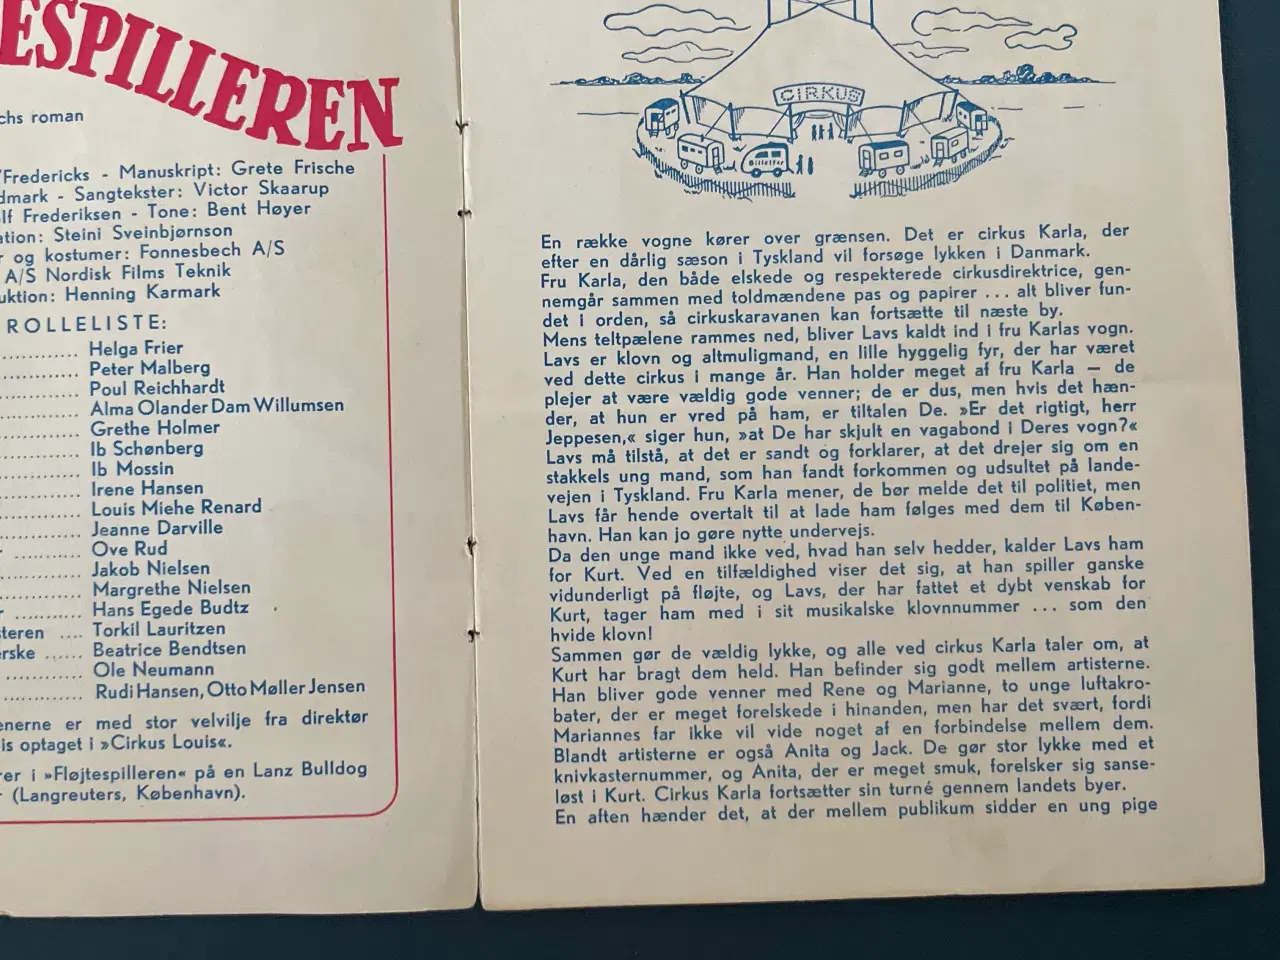 ESPILLEREN
chs roman
/Fredericks - Manuskript: Grete Frische
dmark - Sangtekster: Victor Skaarup
lf Frederiksen - Tone: Bent Høyer
ation: Steini Sveinbjørnson
r og kostumer: Fonnesbech A/S
A/S Nordisk Films Teknik
uktion: Henning Karmark
ROLLELISTE:
............ Helga Frier
............ Peter Malberg
............ Poul Reichhardt
............ Alma Olander Dam Willumsen
............ Grethe Holmer
............ Ib Schønberg
............ Ib Mossin
............ Irene Hansen
............ Louis Miehe Renard
............ Jeanne Darville
r ............ Ove Rud
............ Jakob Nielsen
............ Margrethe Nielsen
r ............ Hans Egede Budtz
steren .... Torkil Lauritzen
erske ...... Beatrice Bendtsen
............ Ole Neumann
............ Rudi Hansen, Otto Møller Jensen
enerne er med stor velvilje fra direktør
is optaget i »Cirkus Louis«.
rer i »Fløjtespilleren« på en Lanz Bulldog
r (Langreuters, København).
CIRKUS
Billetter
En række vogne kører over grænsen. Det er cirkus Karla, der
efter en dårlig sæson i Tyskland vil forsøge lykken i Danmark.
Fru Karla, den både elskede og respekterede cirkusdirektrice, gen-
nemgår sammen med toldmændene pas og papirer ... alt bliver fun-
det i orden, så cirkuskaravanen kan fortsætte til næste by.
Mens teltpælene rammes ned, bliver Lavs kaldt ind i fru Karlas vogn.
Lavs er klovn og altmuligmand, en lille hyggelig fyr, der har været
ved dette cirkus i mange år. Han holder meget af fru Karla — de
plejer at være vældig gode venner; de er dus, men hvis det hæn-
der, at hun er vred på ham, er tiltalen De. »Er det rigtigt, herr
Jeppesen,« siger hun, »at De har skjult en vagabond i Deres vogn?«
Lavs må tilstå, at det er sandt og forklarer, at det drejer sig om en
stakkels ung mand, som han fandt forkommen og udsultet på lande-
vejen i Tyskland. Fru Karla mener, de bør melde det til politiet, men
Lavs får hende overtalt til at lade ham følges med dem til Køben-
havn. Han kan jo gøre nytte undervejs.
Da den unge mand ikke ved, hvad han selv hedder, kalder Lavs ham
for Kurt. Ved en tilfældighed viser det sig, at han spiller ganske
vidunderligt på fløjte, og Lavs, der har fattet et dybt venskab for
Kurt, tager ham med i sit musikalske klovnnummer ... som den
hvide klovn!
Sammen gør de vældig lykke, og alle ved cirkus Karla taler om, at
Kurt har bragt dem held. Han befinder sig godt mellem artisterne.
Han bliver gode venner med Rene og Marianne, to unge luftakro-
bater, der er meget forelskede i hinanden, men har det svært, fordi
Mariannes far ikke vil vide noget af en forbindelse mellem dem.
Blandt artisterne er også Anita og Jack. De gør stor lykke med et
knivkasternummer, og Anita, der er meget smuk, forelsker sig sanse-
løst i Kurt. Cirkus Karla fortsætter sin turné gennem landets byer.
En aften hænder det, at der mellem publikum sidder en ung pige